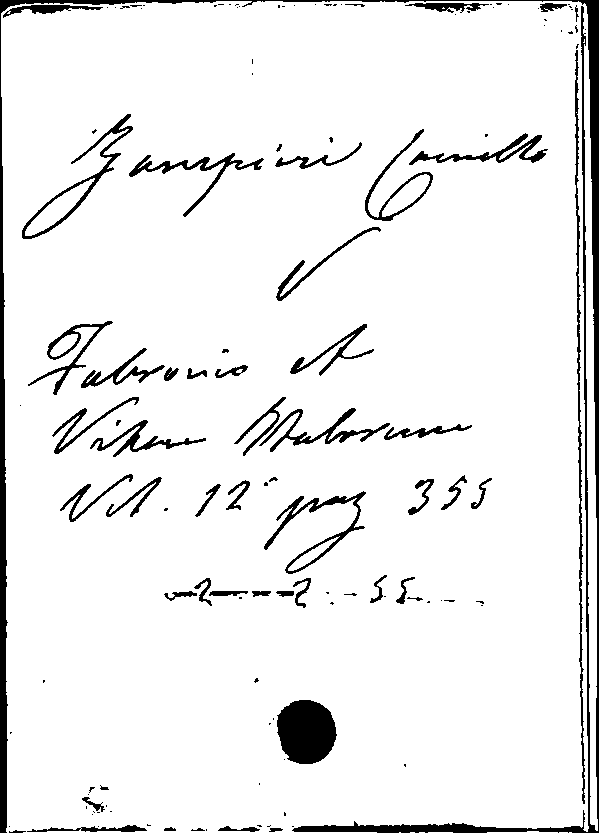 Zampieri Camillo
V
Fabronio A
Vitae Italorum
Vol. 12° pag 355